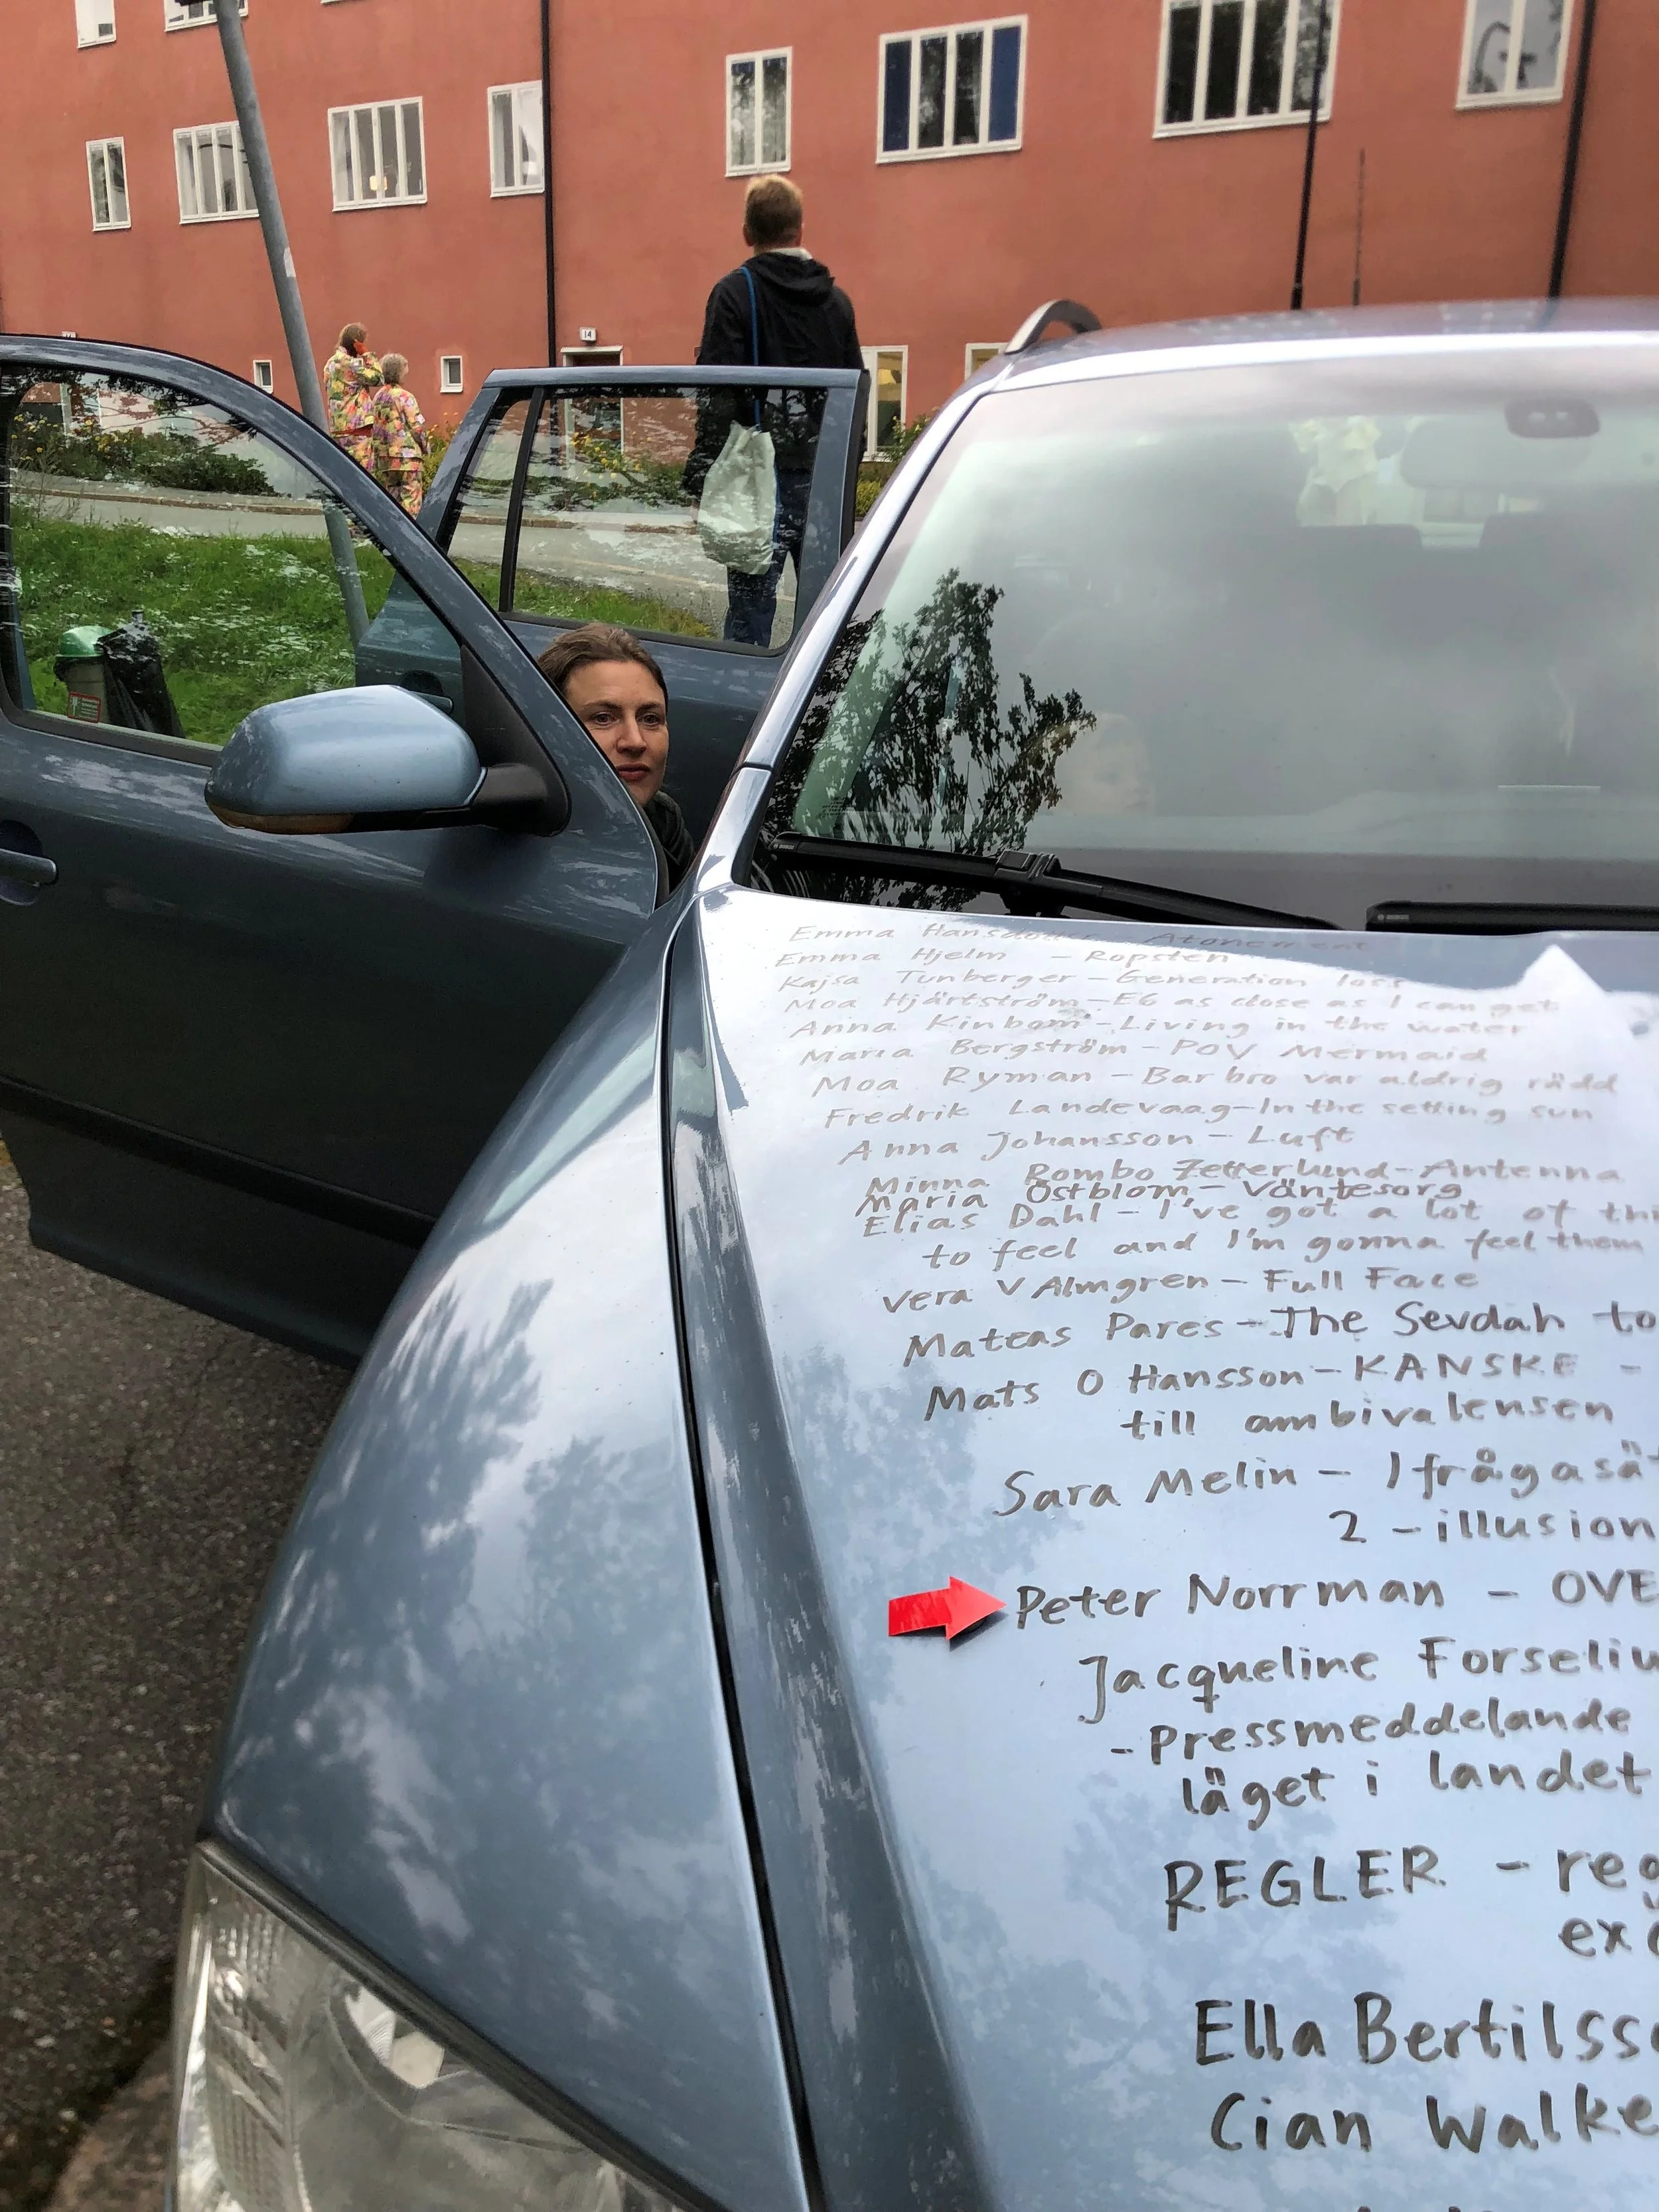 14
Emma Hansdotter - Atonement
Emma Hjelm - Ropsten
Kajsa Tunberger - Generation loss
Moa Hjärtström - E6 as close as I can get
Anna Kinbom - Living in the water
Maria Bergström - POV Mermaid
Moa Ryman - Barbro var aldrig rädd
Fredrik Landevaag - In the setting sun
Anna Johansson - Luft
Minna Rombo Zetterlund - Antenna
Maria Östblom - Väntesorg
Elias Dahl - I've got a lot of thi
to feel and I'm gonna feel them
Vera V Almgren - Full Face
Mateas Pares - The Sevdah to
Mats O Hansson - KANSKE -
till ambivalensen
Sara Melin - Ifrågasät
2 - illusion
Peter Norrman - OVE
Jacqueline Forseliu
- Pressmeddelande
läget i landet
REGLER - reg
exc
Ella Bertilsso
Cian Walke